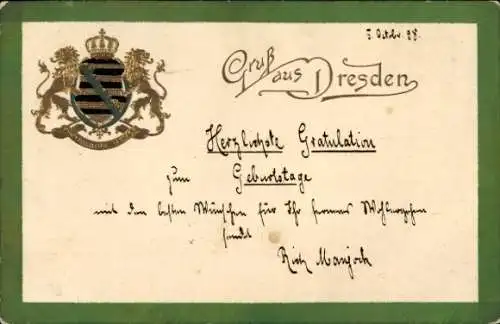 5. Octbr. 98.
Gruß
aus Dresden
Herzlichste Gratulation
zum Geburtstage
mit den besten Wünschen für Ihr ferneres Wohlergehen
sendet